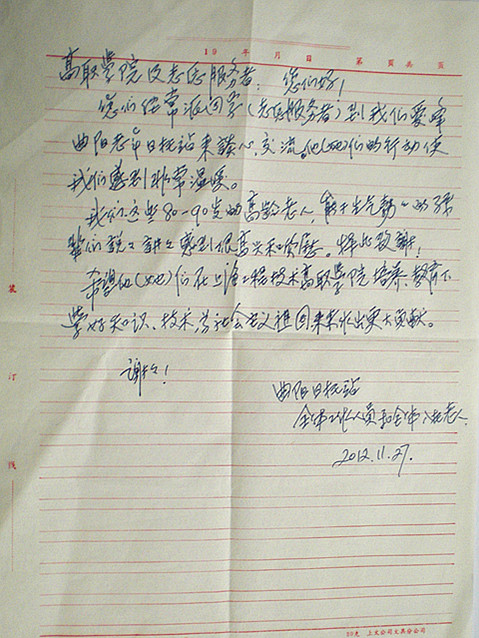 19 年 月 日 第 页共 页
高职学院及志愿服务者: 您们好!
您们经常派同学(志愿服务者)到我们爱峰
曲阳老年日托站来谈心、交流。他(她)们的行动使
我们感到非常温暖。
我们这些80-90岁的高龄老人,能与生气勃勃的孩
辈们说说讲讲感到很高兴和欣慰。特此致谢!
希望他(她)们在上海工程技术高职学院培养、教育下
学好知识、技术,为社会主义祖国未来作出更大贡献。
谢谢!
曲阳日托站
全体工作人员和全体入托老人
2012.11.27.
装
订
线
上文公司文具分公司